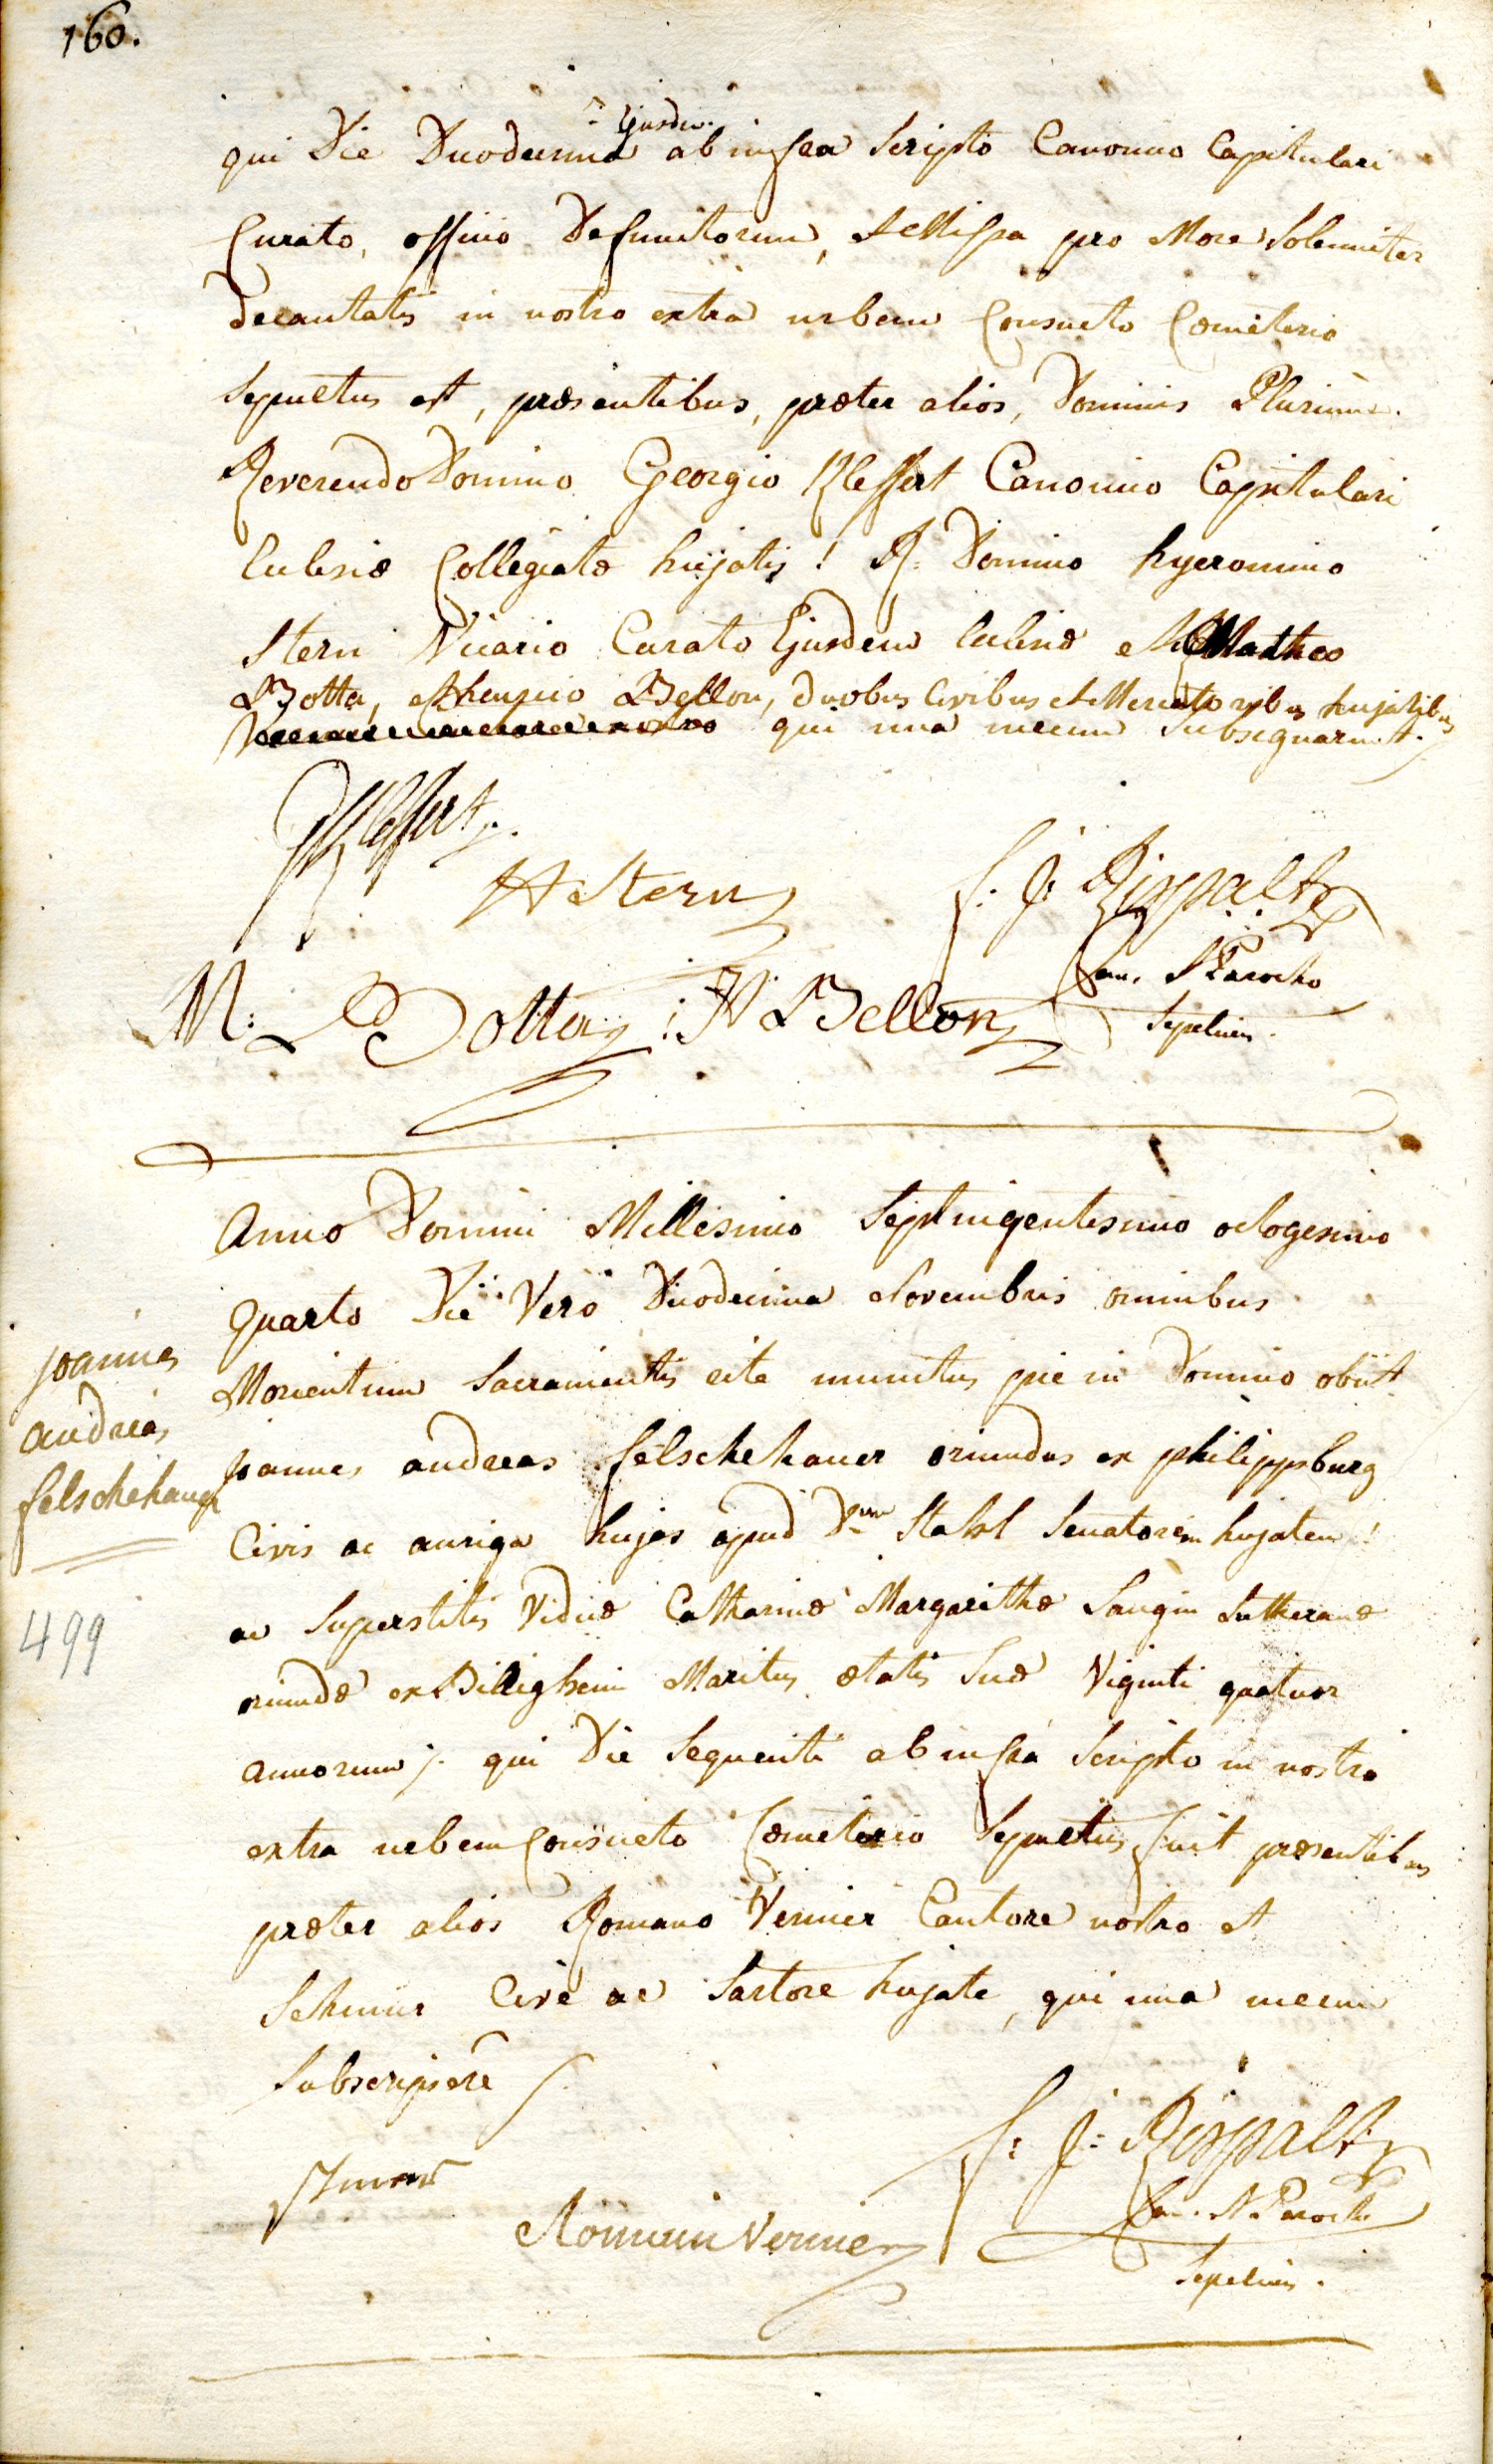 160.
Ejusdem.
qui Die Duodecima ab infra Scripto Canonico Capitulari
Curato, officio Defunctorum, et Missa pro More Solemniter
decantatis in nostro extra urbem Consueto Cœmeterio
Sepultus est, præsentibus, præter alios, Dominis Plurimum.
Reverendo Domino Georgio Kleffert Canonico Capitulari
Ecclesiæ Collegiatæ hujatis! R: Domino hyeronimo
Stern Vicario Curato Ejusdem Ecclesiæ et Matheo
Botta, et Bellon, duobus Civibus et Mercatoribus hujatibus
qui una mecum Subsignarunt.
Kleffert.
H Stern
f: J: Rispalt
Can. Parocho
M: Botta
H Bellon
Sepeliens.
Anno Domini Millesimo Septingentesimo octogesimo
quarto Die Vero Duodecima Novembris omnibus
Morientium Sacramentis rite munitus pie in Domino obiit
Joannes andreas felschehauer oriundus ex philippsburg
Joannes
andreas
felschehauer
Civis ac auriga hujas apud Dnum Stahl Senatorem hujatem!
ac Superstitis Viduæ Catharinæ Margarithæ Saugin Lutheranæ
499
oriundæ ex Billigheim Maritus ætatis Suæ Viginti quatuor
annorum /. qui Die Sequenti ab infra Scripto in nostro
extra urbem Consueto Cœmeterio Sepultus fuit præsentibus
præter alios Romano Vernier Cantore nostro et
Schmur Cive ac Sartore hujate, qui una mecum
Subscripsere /.
f: J: Rispalt
Can. N. Parocho
Romain Vernier
Sepeliens.